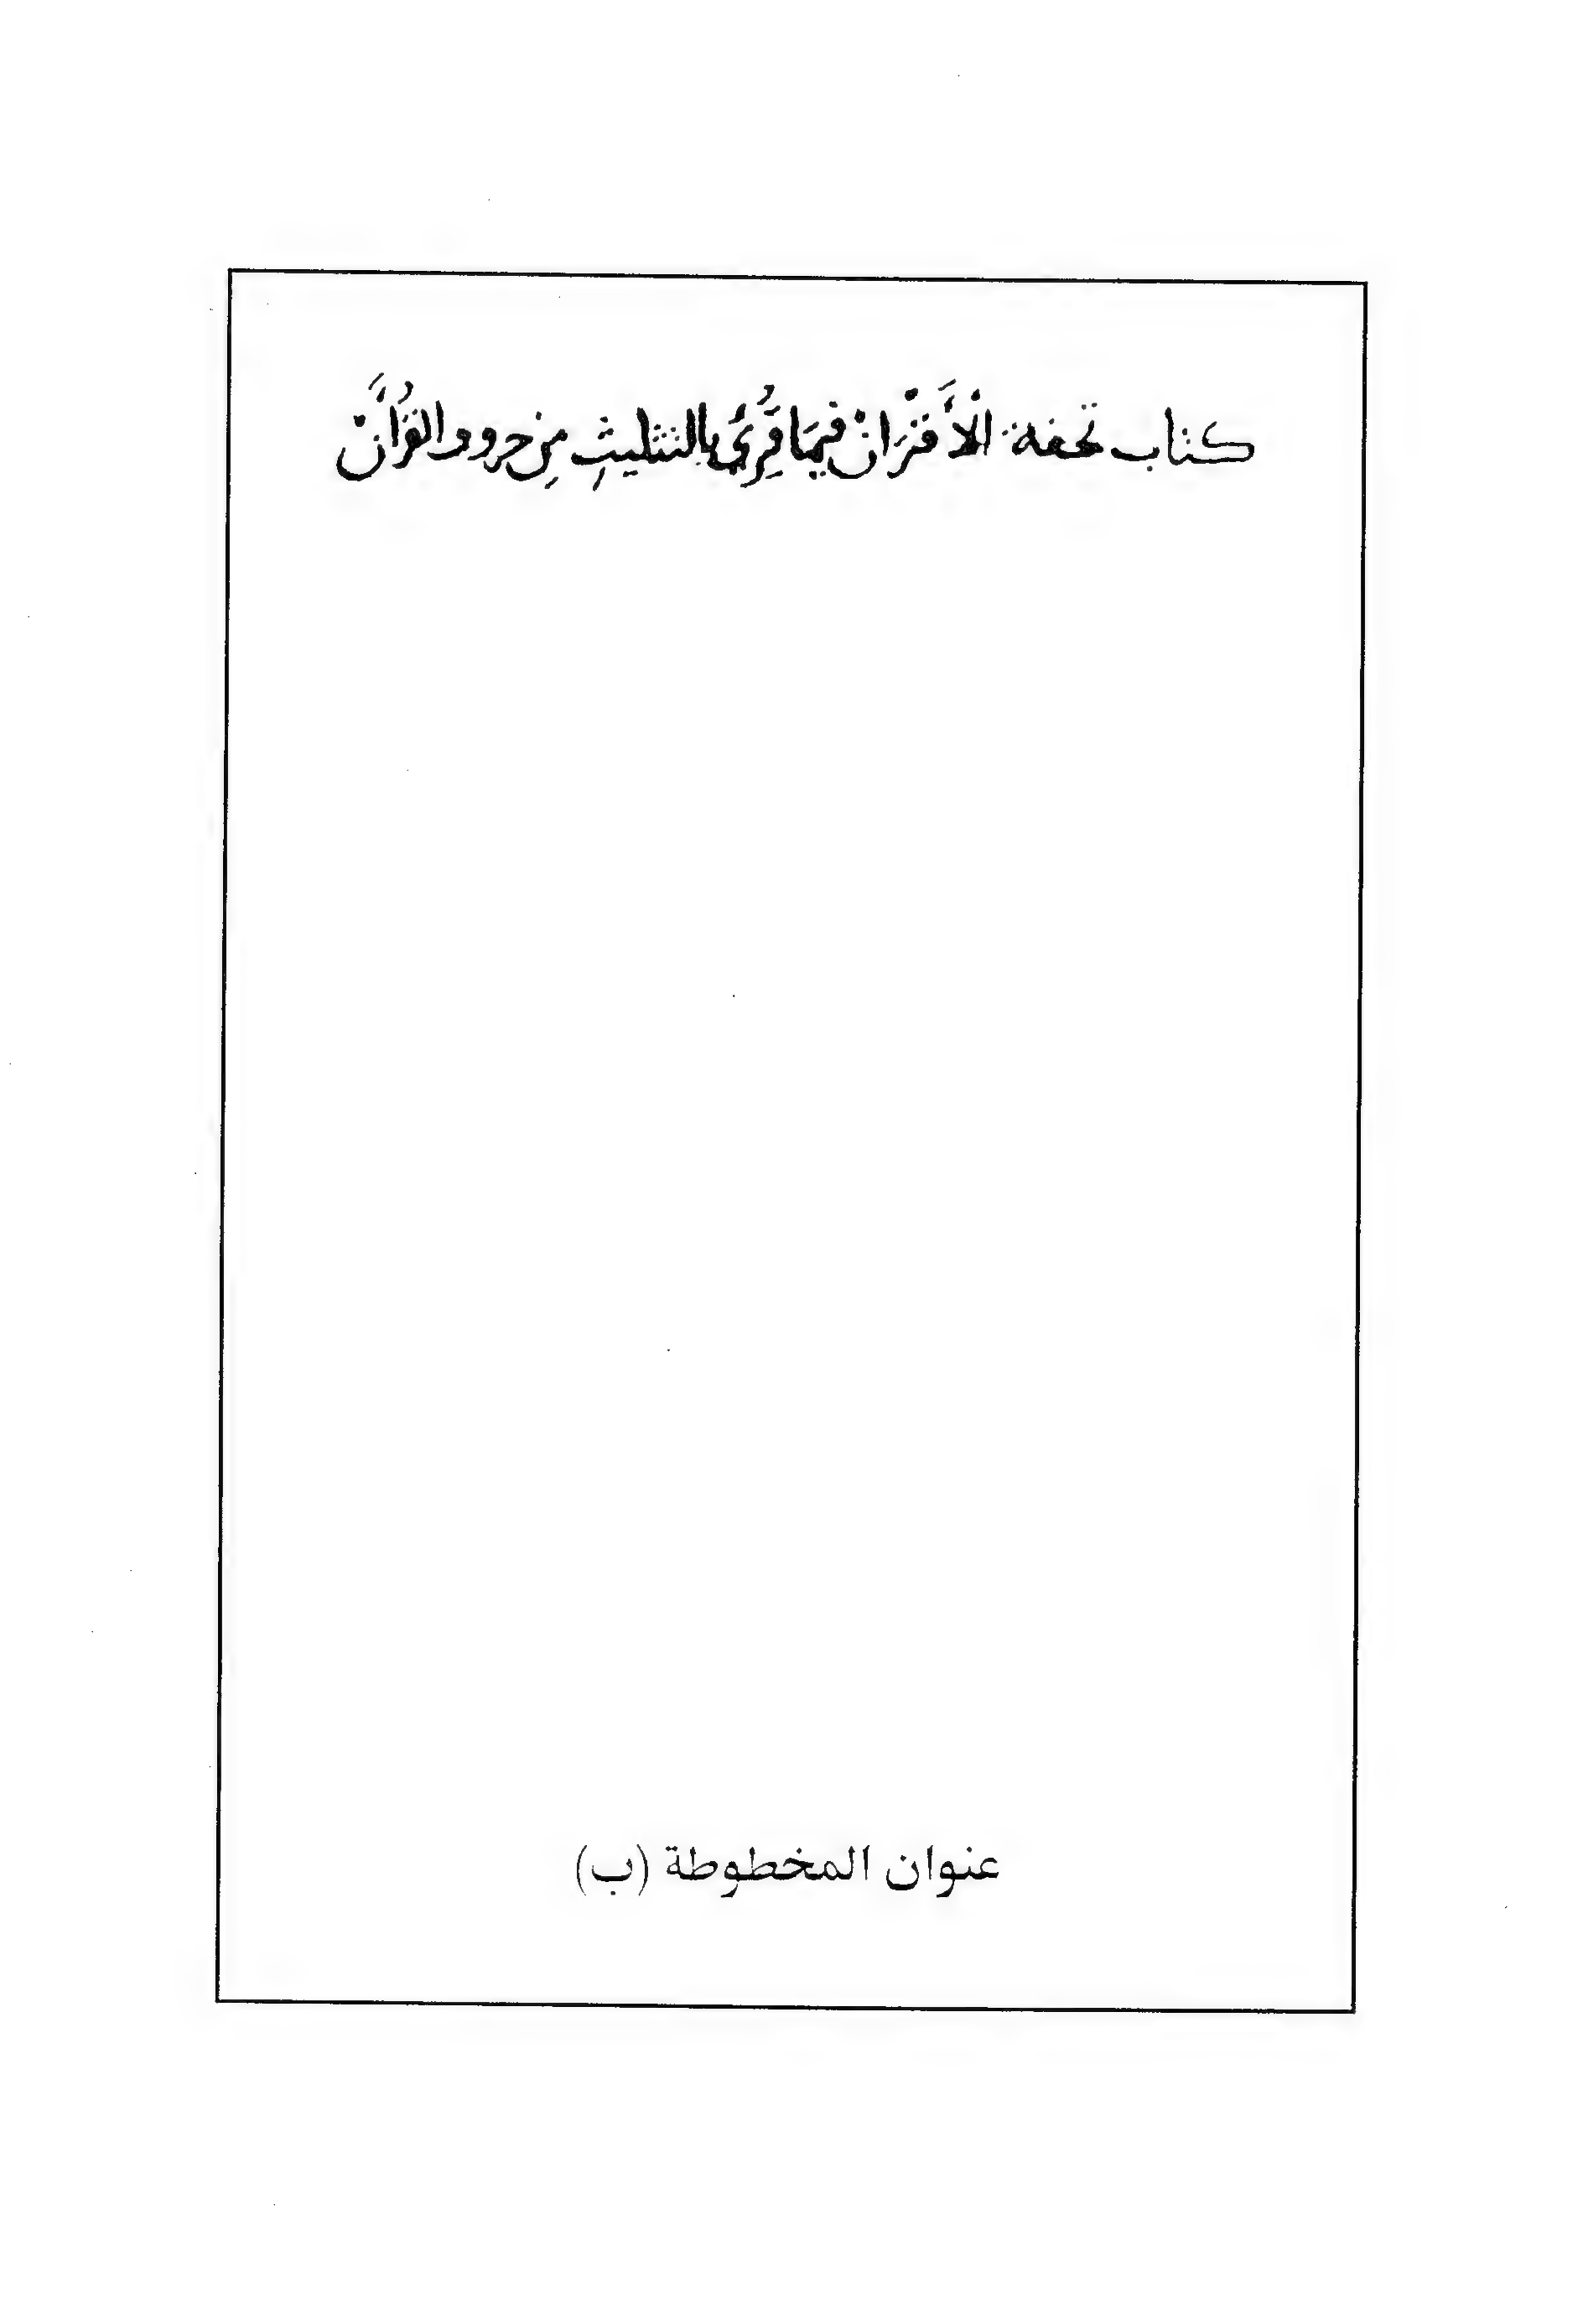 كتاب تحفة الْأَقْرَانْ فيمَا قُرِئَ بِالتثليثِ مِن حروف القُرْآنْ
عنوان المخطوطة (ب)